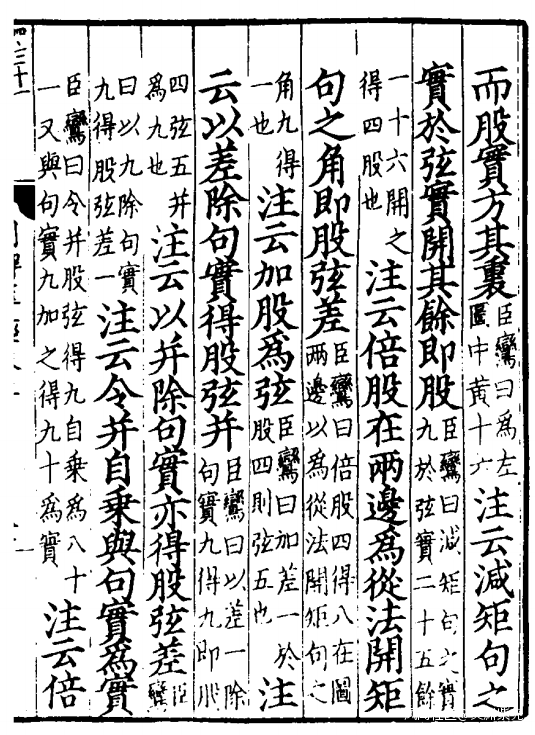 而股實方其裏臣鸞曰爲左圖中黄十六注云減矩句之
實於弦實開其餘即股臣鸞曰減矩句之實九於弦實二十五餘
一十六開之得四股也注云倍股在兩邊爲從法開矩
句之角即股弦差臣鸞曰倍股四得八在圖兩邊以爲從法開矩句之
角九得一也注云加股爲弦臣鸞曰加差一於股四則弦五也注
云以差除句實得股弦并臣鸞曰以差一除句實九得九即股
四弦五并爲九也注云以并除句實亦得股弦差臣鸞
曰以九除句實九得股弦差一注云令并自乘與句實爲實
臣鸞曰令并股弦得九自乘爲八十一又與句實九加之得九十爲實注云倍